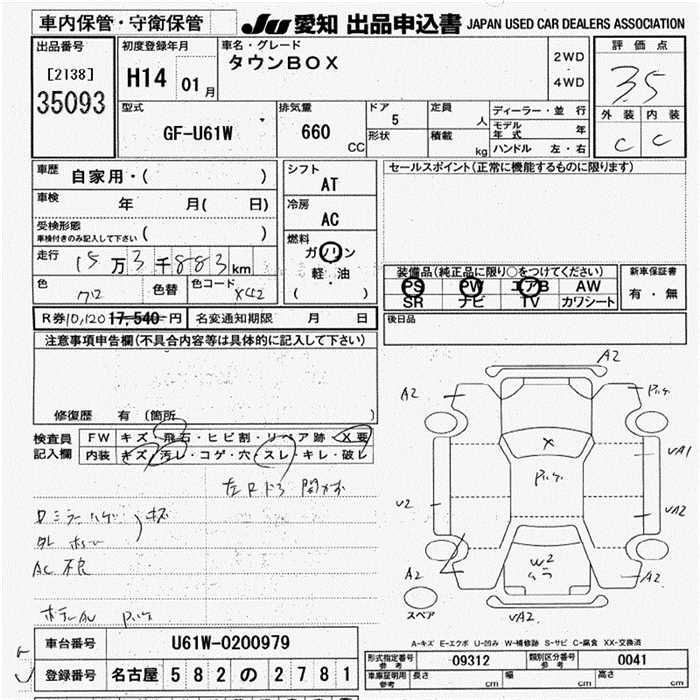 車内保管・守衛保管
JU 愛知 出品申込書 JAPAN USED CAR DEALERS ASSOCIATION
出品番号
[2138]
35093
初度登録年月
H14 01月
車名・グレード
タウンBOX
2WD
4WD
評価点
3.5
外装 内装
C C
型式
GF-U61W
排気量
660
CC
ドア
5
形状
定員
人
積載
kg
ディーラー・並行
モデル年式 年
ハンドル 左・右
車歴
自家用・( )
車検
年 月( 日)
受検形態
車検付きのみ記入して下さい ( )
走行
15万3千883km
色
色替
色コード
シフト
AT
冷房
AC
燃料
ガソリン
軽・油
( )
セールスポイント(正常に機能するものに限ります)
装備品(純正品に限り○をつけてください)
PS PW エアB AW
SR ナビ TV カワシート
新車保証書
有・無
R券 10,120 17,540 円
名変通知期限 月 日
後日品
注意事項申告欄(不具合内容等は具体的に記入して下さい)
修復歴 有(箇所 )
検査員記入欄
FW キズ・飛石・ヒビ割・リペア跡・X要
内装 キズ・汚レ・コゲ・穴・スレ・キレ・破レ
キズ
AC 不良
A2
A2
X
VA1
VA2
W2
A2
A2
VA2
スペア
A-キズ E-エクボ U-凹み W-補修跡 S-サビ C-腐食 XX-交換済
車台番号
U61W-0200979
登録番号
名古屋 582 の 2781
形式指定番号 参考
09312
類別区分番号 参考
0041
車庫証明用 参考
長さ cm
幅 cm
高さ cm